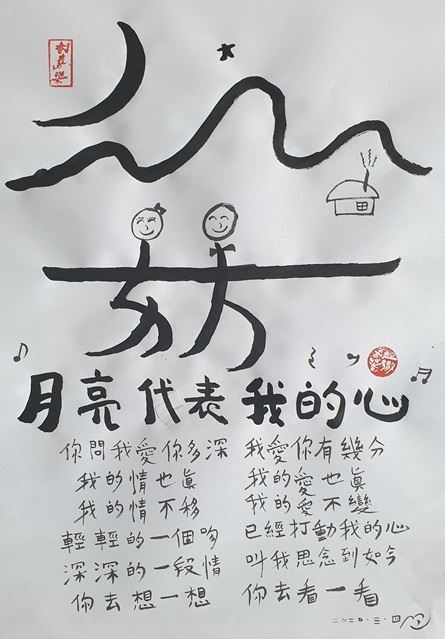 月亮代表我的心
你問我愛你多深 我愛你有幾分
我的情也眞 我的愛也眞
我的情不移 我的愛不變
輕輕的一個吻 已經打動我的心
深深的一段情 叫我思念到如今
你去想一想 你去看一看